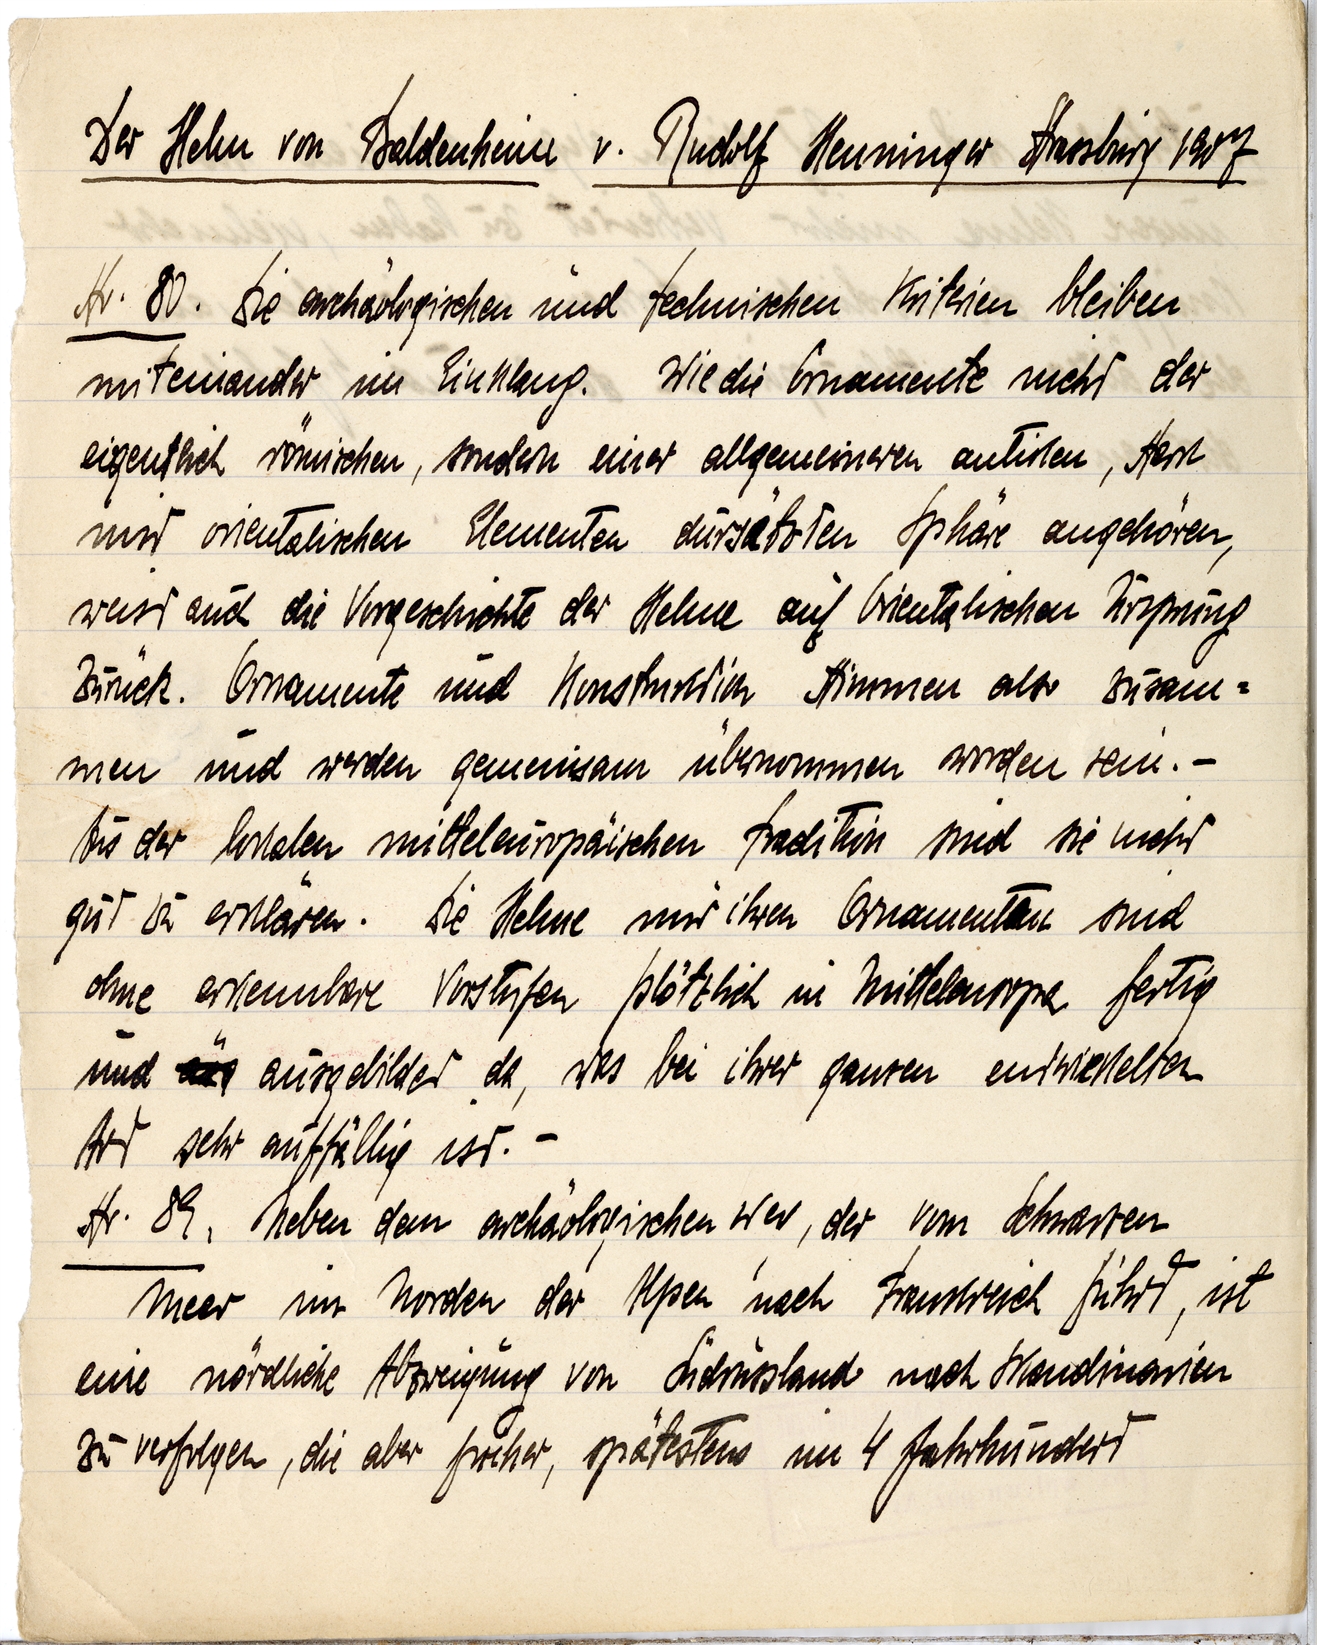 Der Helm von Baldenheim v. Rudolf Henninger Strassburg 1907
Nr. 80. Die archäologischen und technischen Kriterien bleiben
miteinander im Einklang. Wie die Ornamente nicht der
eigentlich römischen, sondern einer allgemeineren antiken, stark
mit orientalischen Elementen dursätzten Sphäre angehören,
weist auch die Vorgeschichte der Helme auf Orientalischen Ursprung
zurück. Ornamente und Konstruktion stimmen also zusam=
men und werden gemeinsam übernommen worden sein. –
Aus der lokalen mitteleuropäischen Tradition sind sie nicht
gut zu erklären. Die Helme mit ihren Ornamenten sind
ohne erkennbare Vorstufen plötzlich in Mitteleuropa fertig
und ausgebildet da, was bei ihrer ganzen entwickelten
Art sehr auffällig ist. –
Nr. 89. Neben dem archäologischen Weg, der vom Schwarzen
Meer im Norden der Alpen nach Frankreich führt, ist
eine nördliche Abzweigung von Südrussland nach Skandinavien
zu verfolgen, die aber früher, spätestens im 4 Jahrhundert